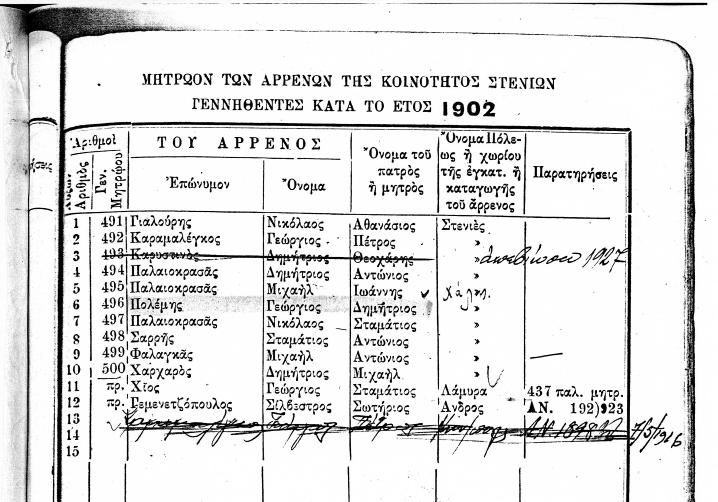 ΜΗΤΡΩΟΝ ΤΩΝ ΑΡΡΕΝΩΝ ΤΗΣ ΚΟΙΝΟΤΗΤΟΣ ΣΤΕΝΙΩΝ
ΓΕΝΝΗΘΕΝΤΕΣ ΚΑΤΑ ΤΟ ΕΤΟΣ 1902
Ἀριθμοί ΤΟΥ ΑΡΡΕΝΟΣ
Αὔξων Ἀριθμὸς Γεν. Μητρῴου Ἐπώνυμον Ὄνομα Ὄνομα τοῦ πατρὸς ἢ μητρὸς Ὄνομα Πόλεως ἢ χωρίου τῆς ἐγκατ. ἢ καταγωγῆς τοῦ ἄρρενος Παρατηρήσεις
1 491 Γιαλούρης Νικόλαος Ἀθανάσιος Στενιὲς
2 492 Καραμαλέγκος Γεώργιος Πέτρος »
3 493 Καρυστινὸς Δημήτριος Θεοχάρης » 1927
4 494 Παλαιοκρασᾶς Δημήτριος Ἀντώνιος »
5 495 Παλαιοκρασᾶς Μιχαὴλ Ἰωάννης
6 496 Πολέμης Γεώργιος Δημήτριος »
7 497 Παλαιοκρασᾶς Νικόλαος Σταμάτιος »
8 498 Σαρρῆς Σταμάτιος Ἀντώνιος »
9 499 Φαλαγκᾶς Μιχαὴλ Ἀντώνιος »
10 500 Χαρχαρὸς Δημήτριος Μιχαὴλ »
11 πρ. Χῖος Γεώργιος Σταμάτιος Λάμυρα 437 παλ. μητρ.
12 πρ. Γεμενετζόπουλος Σίλβεστρος Σωτήριος Ἄνδρος ΑΝ. 192)923
13
14
15